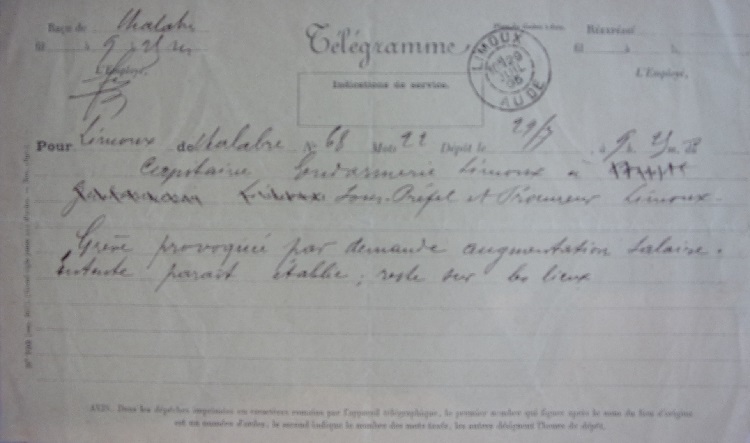 Reçu de Chalabre
fil à 9 25 m
L'Employé,
Télégramme
Indications de service.
LIMOUX
29
JUIL
96
AUDE
Réexpédié
fil à
L'Employé,
Pour Limoux de Chalabre N° 68 Mots 22 Dépôt le 29/7 à 9 h. 25 m.
Capitaine Gendarmerie Limoux à
Sous-Préfet et Procureur Limoux.
Grève provoquée par demande augmentation salaire.
Entente parait établie ; reste sur les lieux
AVIS. Dans les dépêches imprimées en caractères romains par l'appareil télégraphique, le premier nombre qui figure après le nom du lieu d'origine
est un numéro d'ordre, le second indique le nombre des mots taxés, les autres désignent l'heure de dépôt.